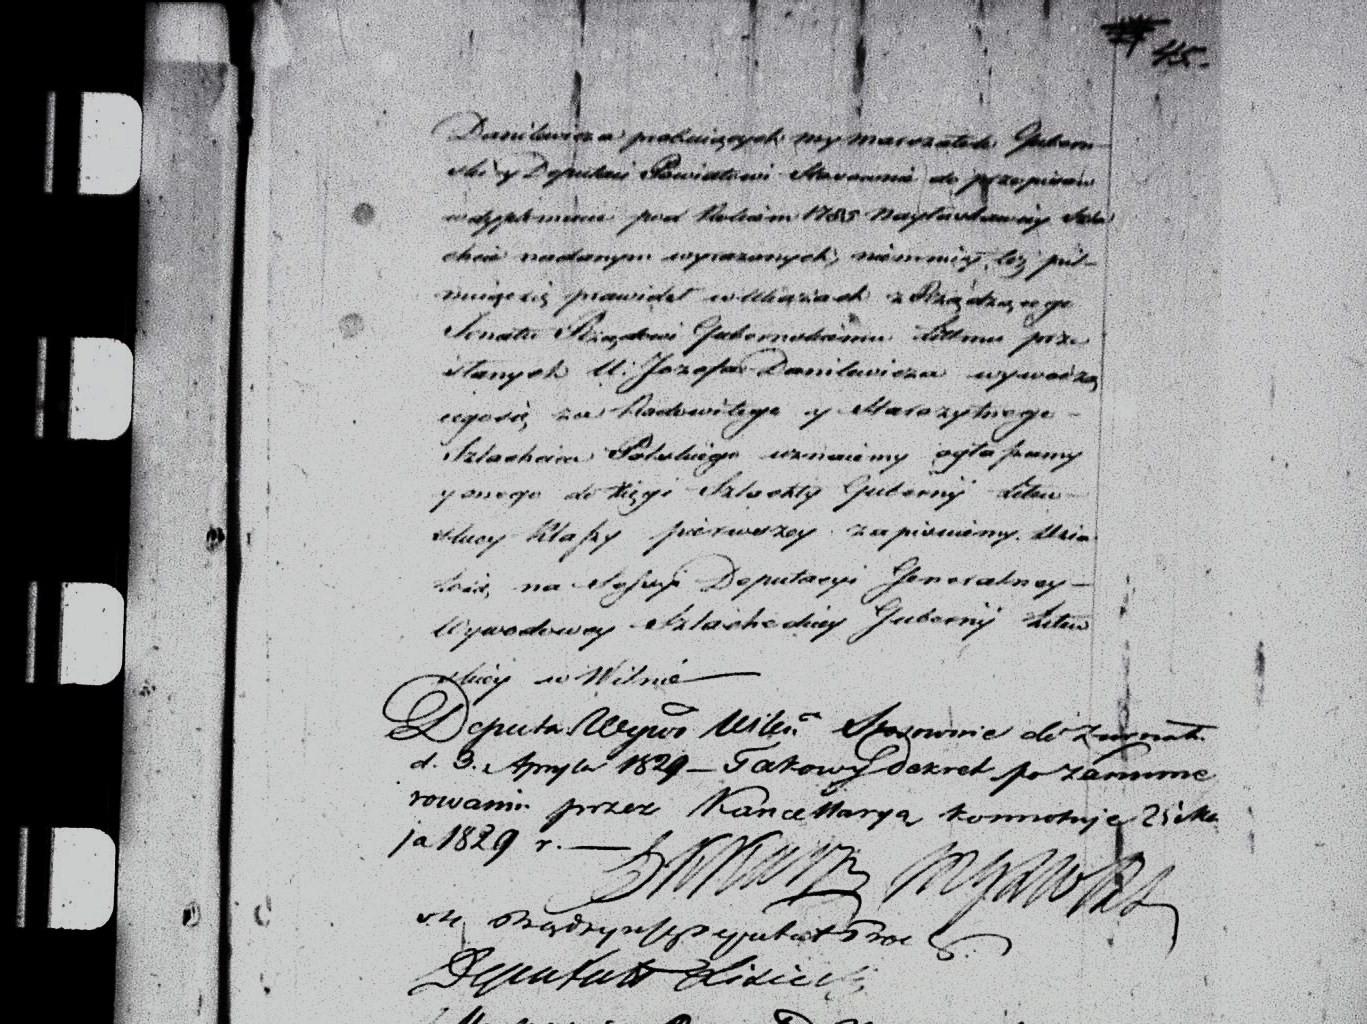 45.
Danilewicza probuiących my marszałek Guberń
ski y Deputaci Powiatowi Stosownie do przepisow
w dyplomacie pod Rokiem 1785 Nayłaskawiey Szla
chcie nadanym wyrażonych, niemniey też pil
prawideł w Ukazach z Rządzącego
Senatu Rządowi Gubernskiemu Littmu prze
słanych U. Jozefa Danilewicza wywodzą
cegosię za Rodowitego y Starożytnego
Szlachcica Polskiego uznaiemy ogłaszamy
y onego do Xięgi Szlachty Gubernij Litew
skiey Klassy pierwszey zapisuiemy. Dzia
łosię na Sessyi Deputacyi Generalney
Wywodowey Szlacheckiey Gubernij Litew
skiey w Wilnie
Deputa Wywo Wileń Stosownie do Żurnału
d. 3. Apryla 1829 – Takowy Dekret po zanume
rowaniu przez Kancellaryą konnotuje
ja 1829 r.
Deputat